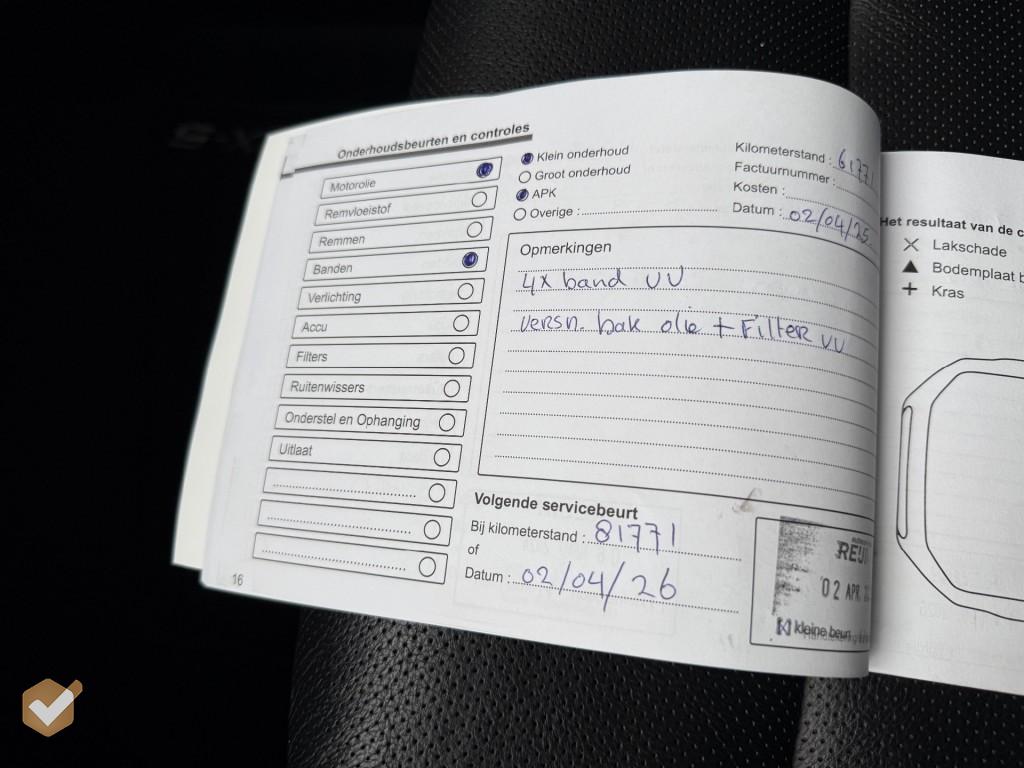 Onderhoudsbeurten en controles
Motorolie
Remvloeistof
Remmen
Banden
Verlichting
Accu
Filters
Ruitenwissers
Onderstel en Ophanging
Uitlaat
16
Klein onderhoud
Groot onderhoud
APK
Overige :
Kilometerstand : 61771
Factuurnummer :
Kosten :
Datum : 02/04/25
Opmerkingen
4x band VV
versn. bak olie + Filter VV
Volgende servicebeurt
Bij kilometerstand : 81771
of
Datum : 02/04/26
02 APR.
kleine beurt
Het resultaat van de
Lakschade
Bodemplaat
Kras